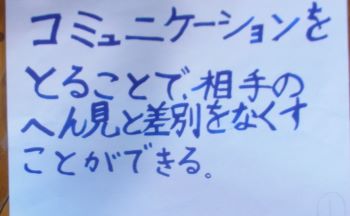 コミュニケーションを
とることで、相手の
へん見と差別をなくす
ことができる。